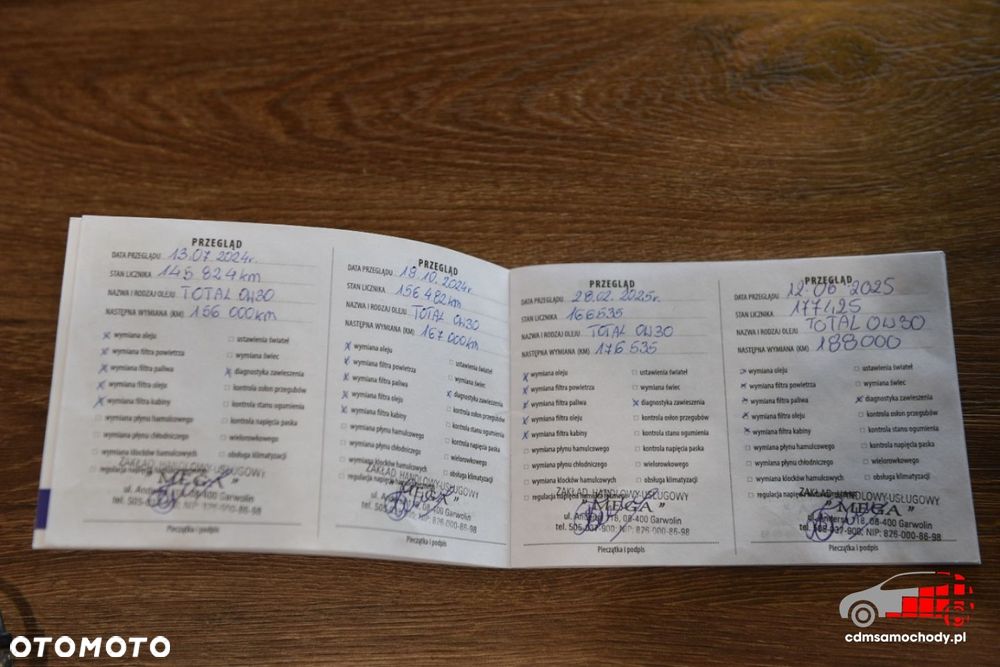 PRZEGLĄD
DATA PRZEGLĄDU 13.07.2024r.
STAN LICZNIKA 145 824 km
NAZWA I RODZAJ OLEJU TOTAL 0W30
NASTĘPNA WYMIANA (KM) 156 000km
x wymiana oleju
x wymiana filtra powietrza
x wymiana filtra paliwa
x wymiana filtra oleju
x wymiana filtra kabiny
wymiana płynu hamulcowego
wymiana płynu chłodniczego
wymiana klocków hamulcowych
regulacja napięcia
ustawienia świateł
wymiana świec
x diagnostyka zawieszenia
kontrola osłon przegubów
kontrola stanu ogumienia
kontrola napięcia paska
wielorowkowego
obsługa klimatyzacji
ZAKŁAD HANDLOWY-USŁUGOWY
"MEGA"
ul. Andersa 08-400 Garwolin
NIP: 826-000-86-98
Pieczątka i podpis
PRZEGLĄD
DATA PRZEGLĄDU 19.10.2024r.
STAN LICZNIKA 156 482km
NAZWA I RODZAJ OLEJU TOTAL 0W30
NASTĘPNA WYMIANA (KM) 167 000km
x wymiana oleju
x wymiana filtra powietrza
x wymiana filtra paliwa
x wymiana filtra oleju
x wymiana filtra kabiny
wymiana płynu hamulcowego
wymiana płynu chłodniczego
wymiana klocków hamulcowych
regulacja napięcia
ustawienia świateł
wymiana świec
x diagnostyka zawieszenia
kontrola osłon przegubów
kontrola stanu ogumienia
kontrola napięcia paska
wielorowkowego
obsługa klimatyzacji
ZAKŁAD HANDLOWY-USŁUGOWY
"MEGA"
08-400 Garwolin
NIP: 826-000-86-98
Pieczątka i podpis
PRZEGLĄD
DATA PRZEGLĄDU 28.02.2025r.
STAN LICZNIKA 166535
NAZWA I RODZAJ OLEJU TOTAL 0W30
NASTĘPNA WYMIANA (KM) 176 535
x wymiana oleju
x wymiana filtra powietrza
x wymiana filtra paliwa
x wymiana filtra oleju
x wymiana filtra kabiny
wymiana płynu hamulcowego
wymiana płynu chłodniczego
wymiana klocków hamulcowych
regulacja napięcia
ustawienia świateł
wymiana świec
x diagnostyka zawieszenia
kontrola osłon przegubów
kontrola stanu ogumienia
kontrola napięcia paska
wielorowkowego
obsługa klimatyzacji
ZAKŁAD HANDLOWY-USŁUGOWY
"MEGA"
ul. Andersa 18, 08-400 Garwolin
tel. 505-937-900, NIP: 826-000-86-98
Pieczątka i podpis
PRZEGLĄD
DATA PRZEGLĄDU 12.06 2025
STAN LICZNIKA 177425
NAZWA I RODZAJ OLEJU TOTAL 0W30
NASTĘPNA WYMIANA (KM) 188000
x wymiana oleju
x wymiana filtra powietrza
x wymiana filtra paliwa
x wymiana filtra oleju
x wymiana filtra kabiny
wymiana płynu hamulcowego
wymiana płynu chłodniczego
wymiana klocków hamulcowych
regulacja napięcia
ustawienia świateł
wymiana świec
x diagnostyka zawieszenia
kontrola osłon przegubów
kontrola stanu ogumienia
kontrola napięcia paska
wielorowkowego
obsługa klimatyzacji
ZAKŁAD HANDLOWY-USŁUGOWY
"MEGA"
ul. Andersa 18, 08-400 Garwolin
tel. 505-937-900, NIP: 826-000-86-98
Pieczątka i podpis
OTOMOTO
cdmsamochody.pl